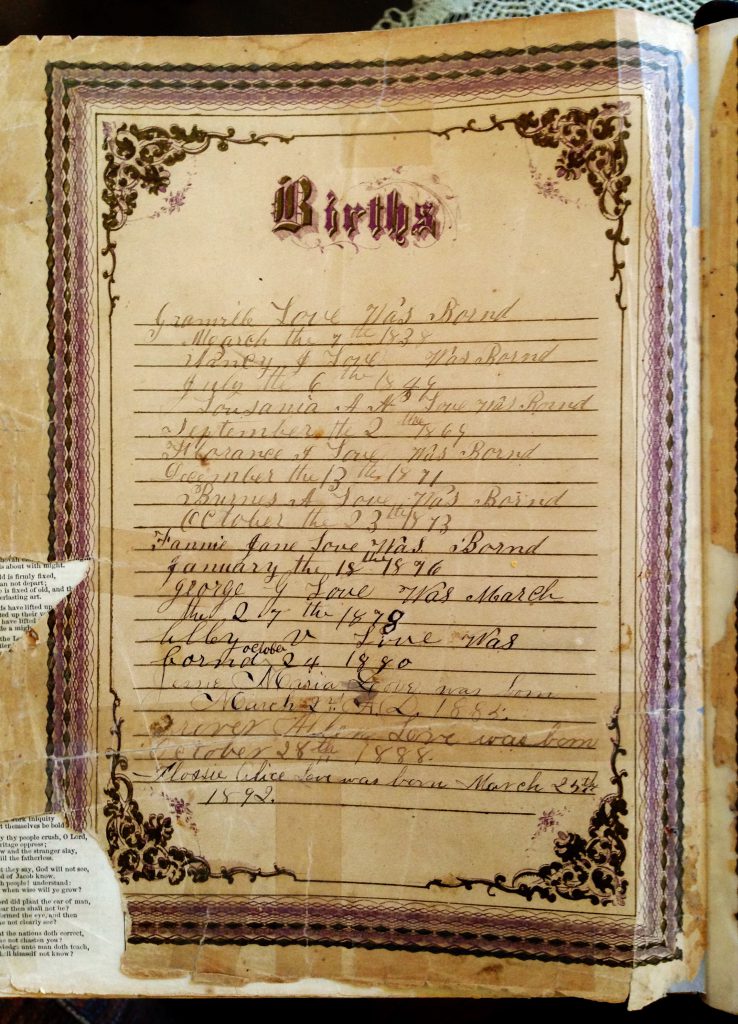 Births
Love Was Bornd
March the 7th 1838
Nancy J Love Was Bornd
July the 6th 1849
Lousania A M Love Was Bornd
September the 2 the 1869
Florance J Love Was Bornd
December the 13th 1871
Burnes A Love Was Bornd
October the 23th 1873
Fannie Jane Love Was Bornd
January the 18th 1876
george G Love Was March
the 27th 1878
V Love Was
bornd october 24 1880
Maria Love was born
March 2 A.D. 1885.
Grover Love was born
October 28th 1888.
Flossie Alice Love was born March 25th
1892.
is about with might.
ld is firmly fixed,
an not depart;
e is fixed of old, and
erlasting art.
ds have lifted up,
ted up their
have lifted
de a
the
work iniquity
themselves be bold
thy people crush, O Lord,
ritage oppress;
w and the stranger slay,
ill the fatherless.
t they say, God will not see,
d of Jacob know.
h people! understand:
when wise will ye grow?
ed did plant the ear of man,
ear then shall not he?
ormed the eye, and then
he not clearly see?
at the nations doth correct,
he not chasten you?
wledge unto man doth teach,
shall himself not know?